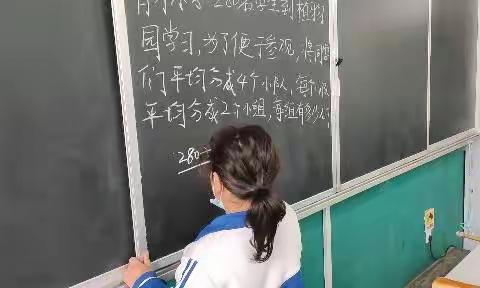 280名学生到植物
园学习,为了便于参观,将同学
们平均分成4个小队,每个小队
平均分成2个小组,每组有多少人?
280